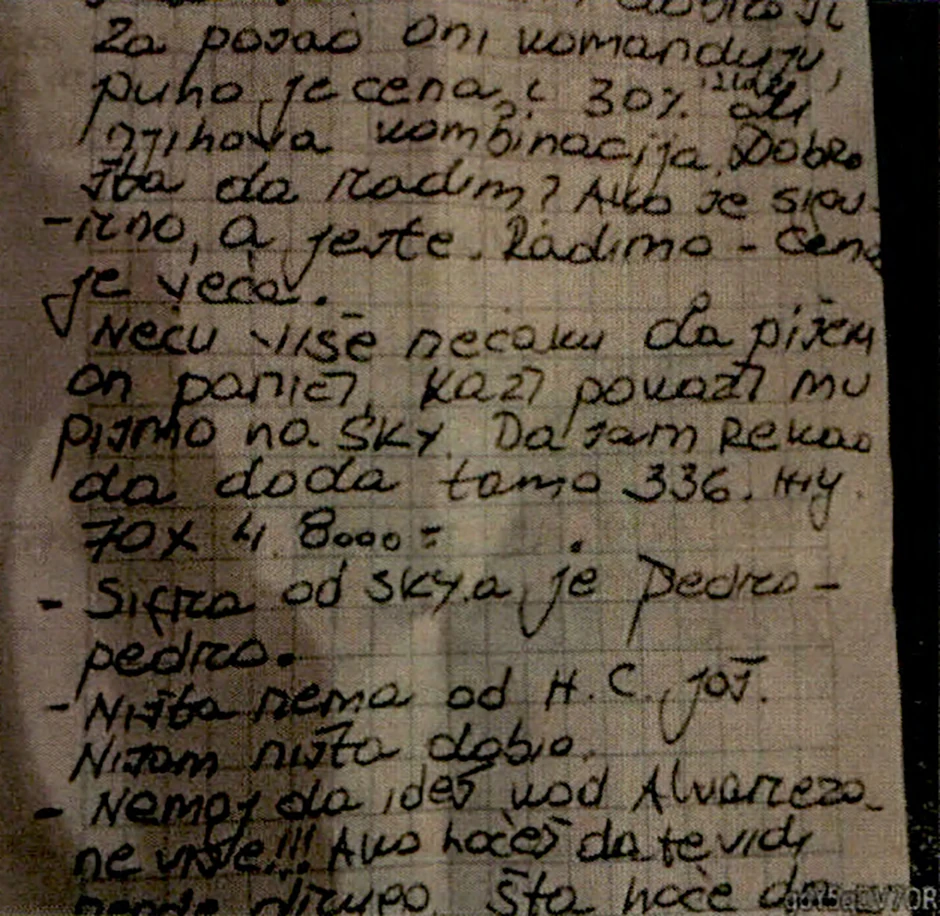 Za posao oni komanduju,
puno je cena, i 30%. idu
njihova kombinacija. Dobro
šta da radim? Ako je sigu-
-irno, a jeste. Radimo - cena
je veća.
Neću više nećaku da pišem
on paniči, kaži pokaži mu
pismo na SKY. Da sam rekao
da doda tamo 336.
70X 4. 8000 =
- Sifra od SKY.a je pedro-
pedro.
- Ništa nema od H.C. još.
Nisam ništa dobio.
- Nemoj da ideš kod Alvareza
ne više!!! Ako hoćeš da te vidi
negde drugo. Šta hoće da